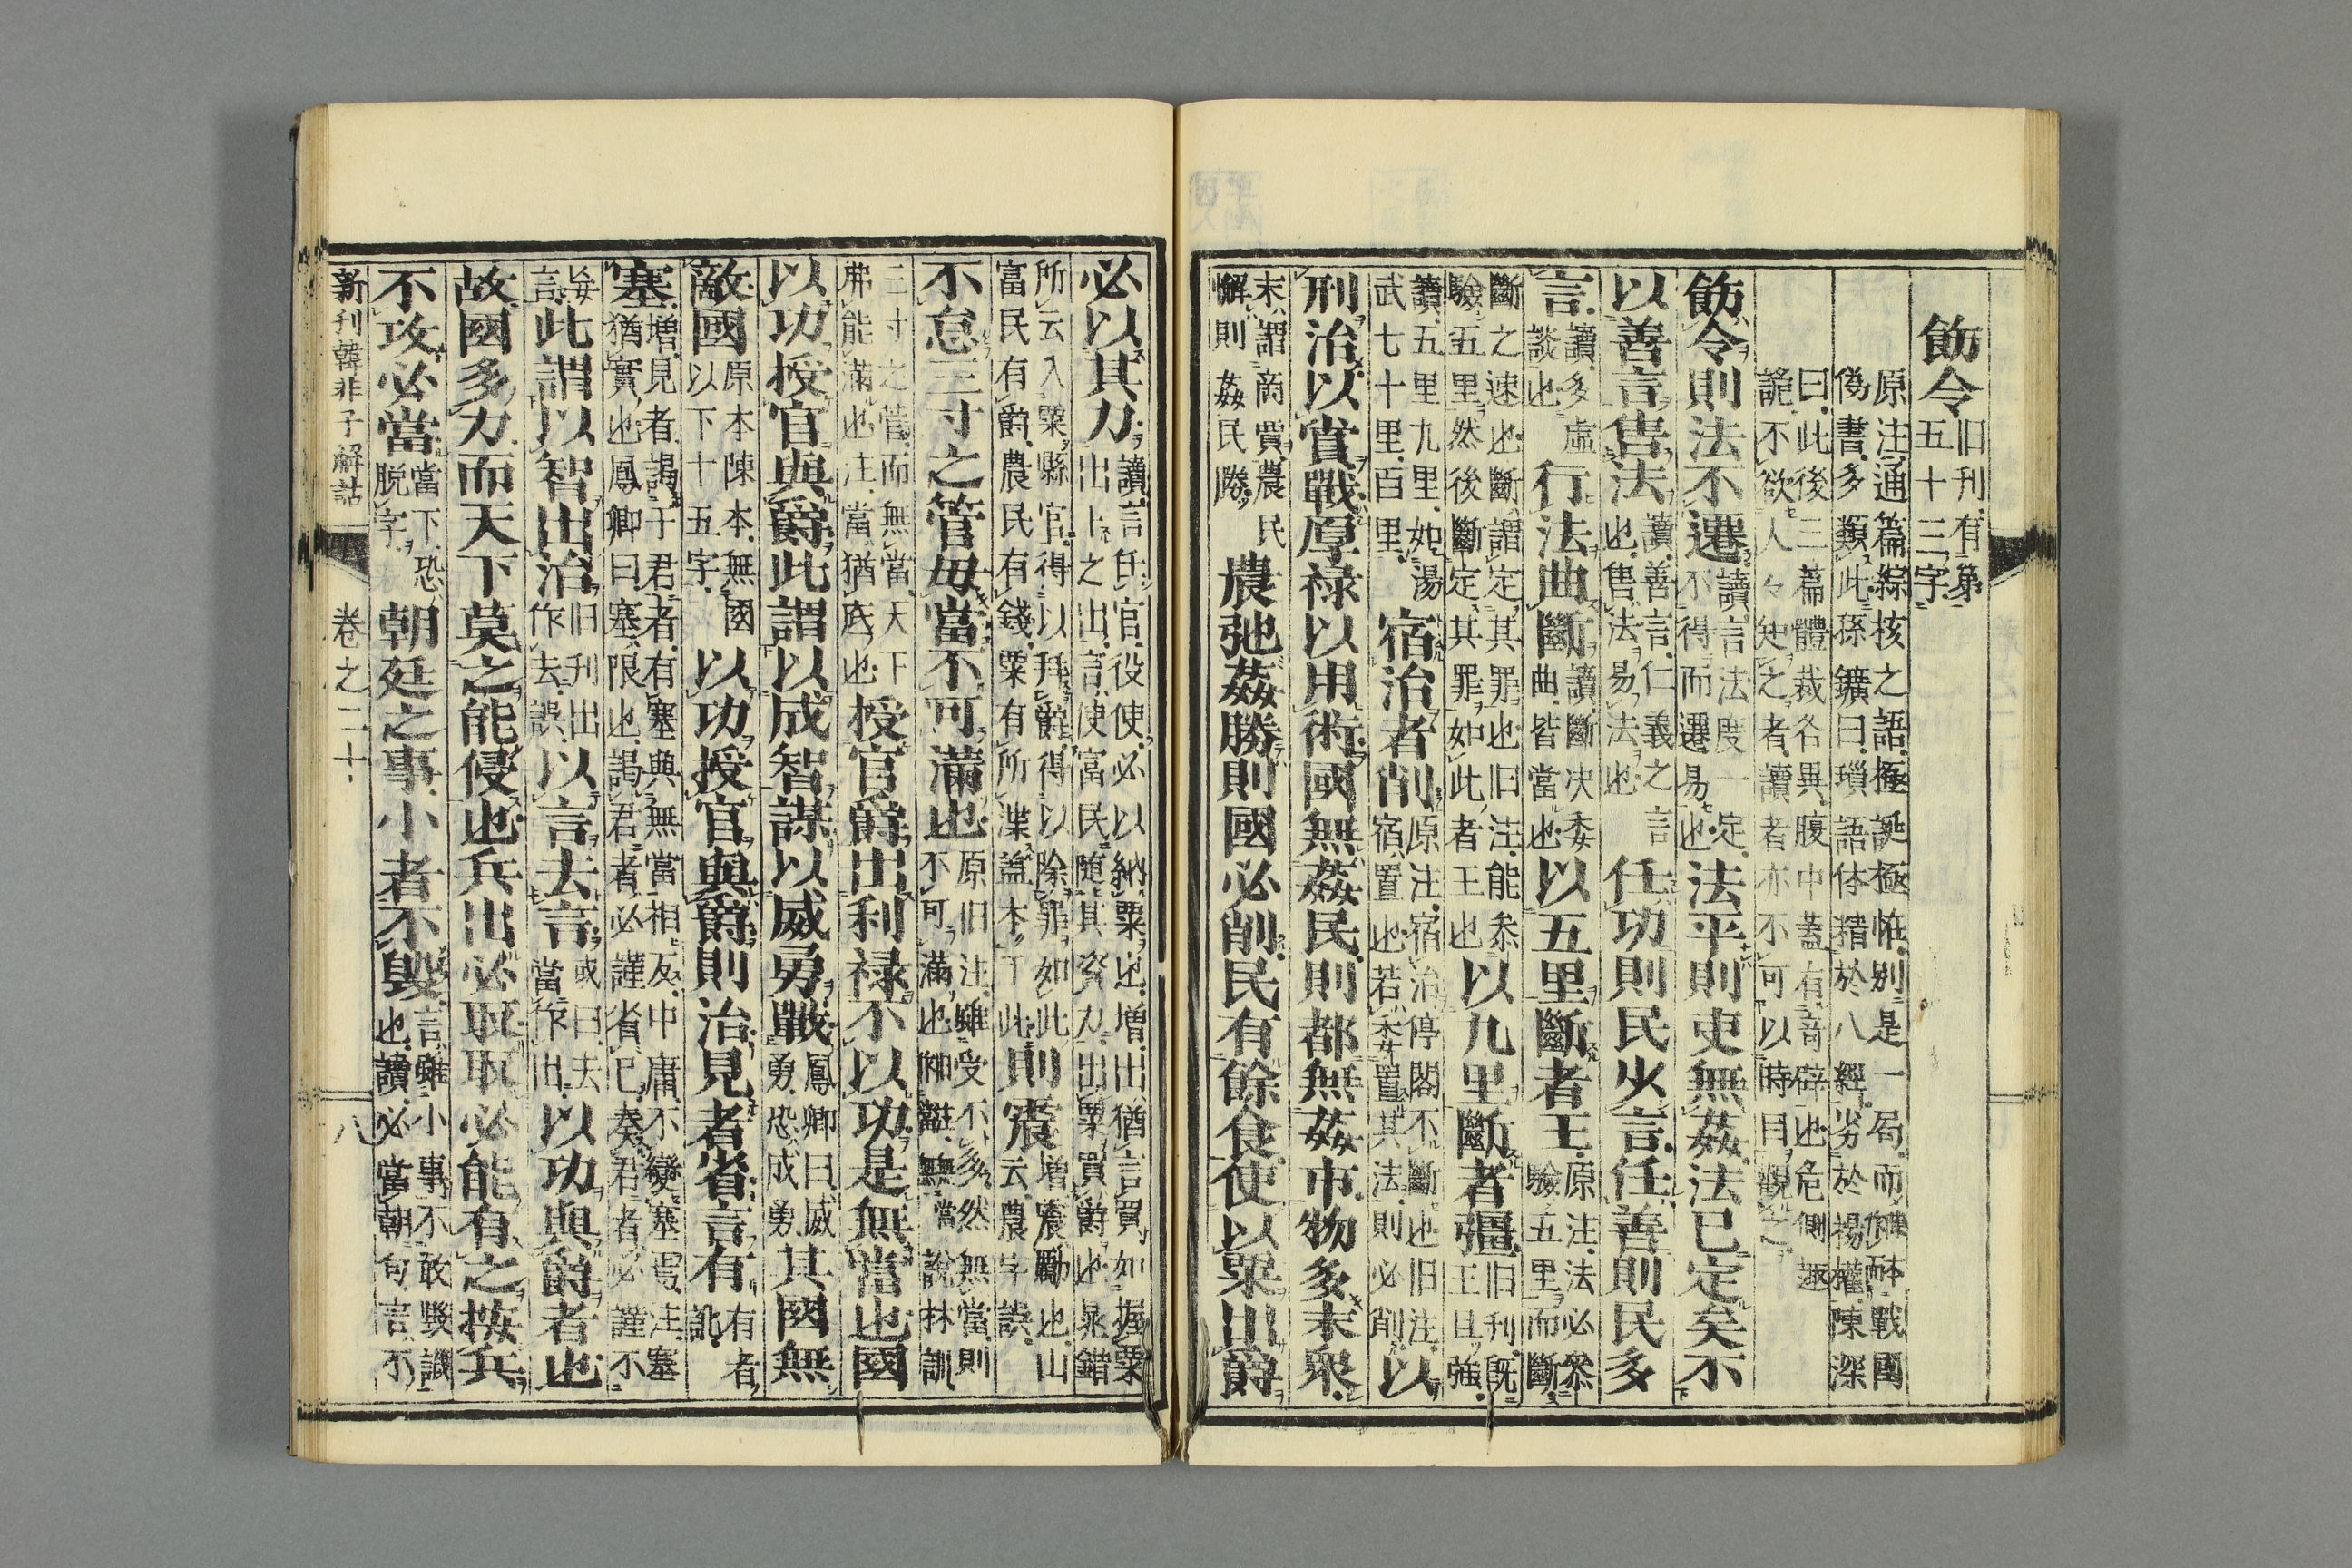 飭令旧刊有第五十三字
原注通篇綜核之語極誕極恠別是一局而
僞書多類此孫鑛曰瑣語体精於八經劣於揚權陳深
曰此後三篇體裁各異腹中蓋有奇僻也危側趣
詭不欲人々知之者讀者亦不可以時日觀之
飭令則法不遷讀言法度一定不得而遷易也法平則吏無姦法已定矣不
以善言售法讀善言仁義之言也售法易法也任功則民少言任善則民多
言讀多虛談也行法曲斷讀斷决委曲皆當也以五里斷者王原注法必叅驗五里而斷
斷之速也斷謂定其罪也旧注能叅驗五里然後斷定其罪如此者王也以九里斷者彊旧刊旣王且強
讀五里九里如湯武七十里百里宿治者削原注宿治停閣不斷也旧注宿置也若委置其法則必削以
刑治以賞戰厚祿以用術國無姦民則都無姦市物多末衆
末謂商賈農民懈則姦民勝農弛姦勝則國必削民有餘食使以粟出爵
必以其力讀言氏官役使必以納粟也增出猶言買如握粟出卜之出言使富民隨其資力出粟買爵也晁錯
所云入粟縣官得以拜爵得以除罪如此富民有爵農民有錢粟有所渫蓋本于此則震增震勵也山云農字誤
不怠三寸之管毋當不可滿也原旧注雖受不多然無當則不可滿也神韰無當說林訓
三寸之管而無當天下弗能滿也注當猶底也授官爵出利祿不以功是無當也國
以功授官與爵此謂以成智謀以威勇戰鳳卿曰威勇恐成勇其國無
敵國原本陳本無國以下十五字以功授官與爵則治見者省言有有者訛
塞增見者謁于君者有塞與無當相反中庸不變塞焉注塞猶實也鳳卿曰塞限也謁君者必謹省已奏君者必謹不
妄言此謂以智出治旧刊出作去誤以言去言或曰去當作出以功與爵者也
故國多力而天下莫之能侵也兵出必取取必能有之按兵
不攻必當當下恐脱字朝廷之事小者不毁言雖小事不敢毁譏也讀必當朝句言不
新刊韓非子解詁 卷之二十 八